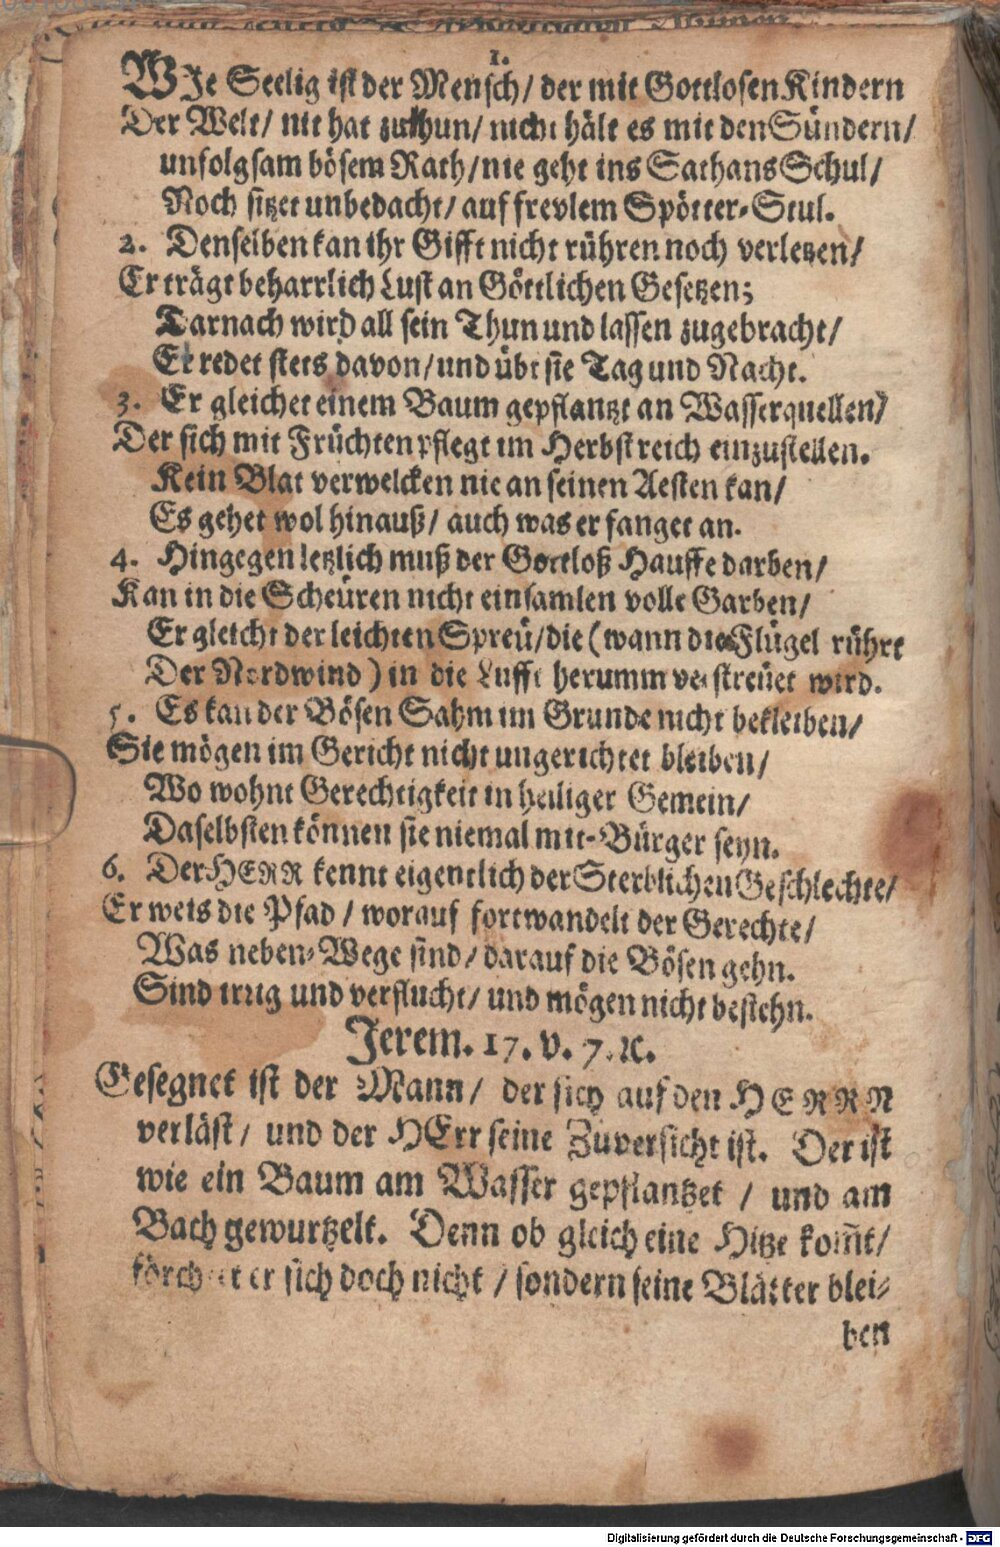 1.
WIe Seelig ist der Mensch/ der mit Gottlosen Kindern
Der Welt/ nit hat zuthun/ nicht hält es mit den Sündern/
unfolgsam bösem Rath/ nie geht ins Sathans Schul/
Noch sitzet unbedacht/ auf frevlem Spötter-Stul.
2. Denselben kan ihr Gifft nicht rühren noch verletzen/
Er trägt beharrlich Lust an Göttlichen Gesetzen;
Darnach wird all sein Thun und lassen zugebracht/
Er redet stets davon/ und übt sie Tag und Nacht.
3. Er gleichet einem Baum gepflantzt an Wasserquellen/
Der sich mit Früchten pflegt im Herbst reich einzustellen.
Kein Blat verwelcken nie an seinen Aesten kan/
Es gehet wol hinauß/ auch was er fanget an.
4. Hingegen letzlich muß der Gottloß Hauffe darben/
Kan in die Scheüren nicht einsamlen volle Garben/
Er gleicht der leichten Spreü/ die (wann die Flügel rührt
Der Nordwind) in die Lufft herumm verstreüet wird.
5. Es kan der Bösen Sahm im Grunde nicht bekleiben/
Sie mögen im Gericht nicht ungerichtet bleiben/
Wo wohnt Gerechtigkeit in heiliger Gemein/
Daselbsten können sie niemal mit-Bürger seyn.
6. Der HERR kennt eigentlich der Sterblichen Geschlechte/
Er weis die Pfad/ worauf fortwandelt der Gerechte/
Was neben-Wege sind/ darauf die Bösen gehn.
Sind irrig und verflucht/ und mögen nicht bestehn.
Jerem. 17. v. 7. ꝛc.
Gesegnet ist der Mann/ der sich auf den HERRN
verläst/ und der HErr seine Zuversicht ist. Der ist
wie ein Baum am Wasser gepflantzet/ und am
Bach gewurtzelt. Denn ob gleich eine Hitze kom̃t/
förchtet er sich doch nicht/ sondern seine Blätter blei-
ben
Digitalisierung gefördert durch die Deutsche Forschungsgemeinschaft - DFG